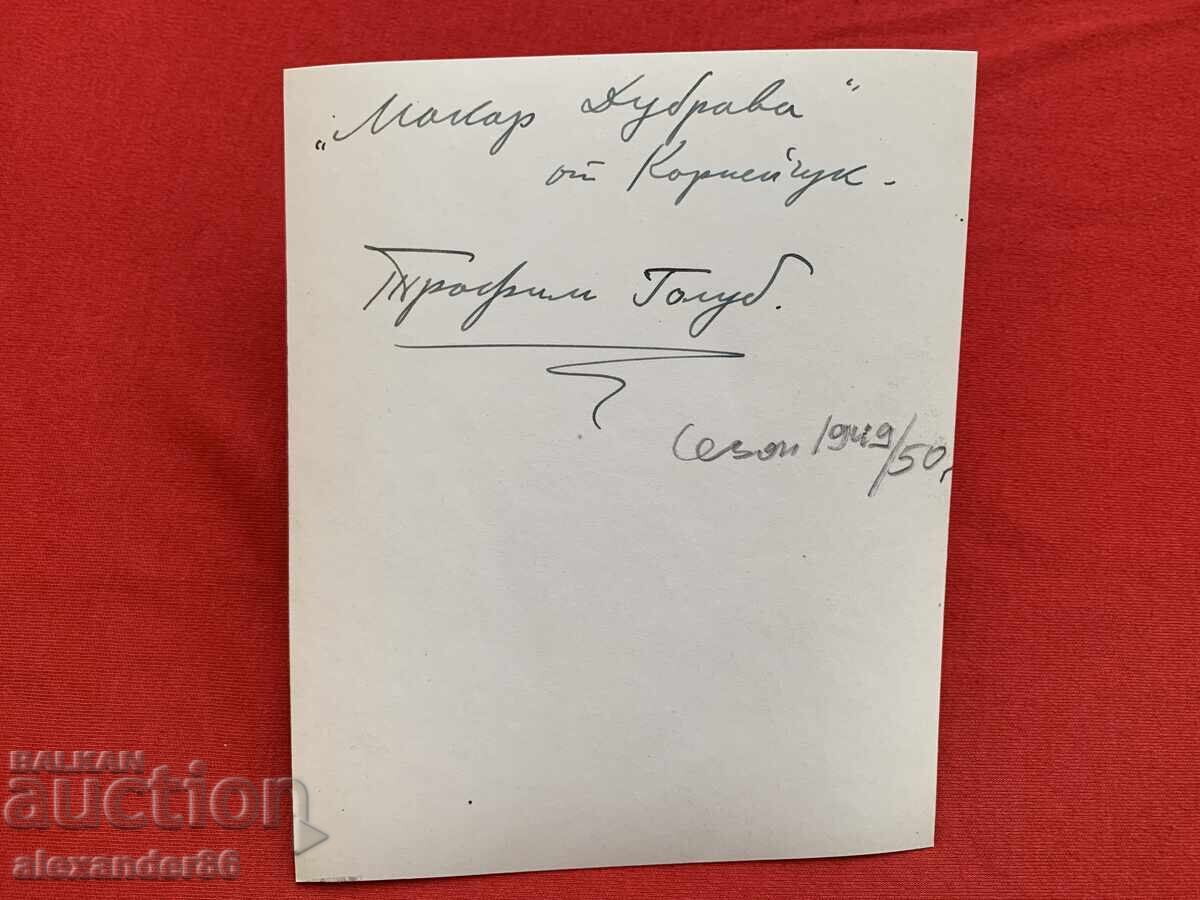 „Макар Дубрава“
от Корнейчук.
Трофим Голуб.
Сезон 1949/50,
BALKAN
auction
alexander86